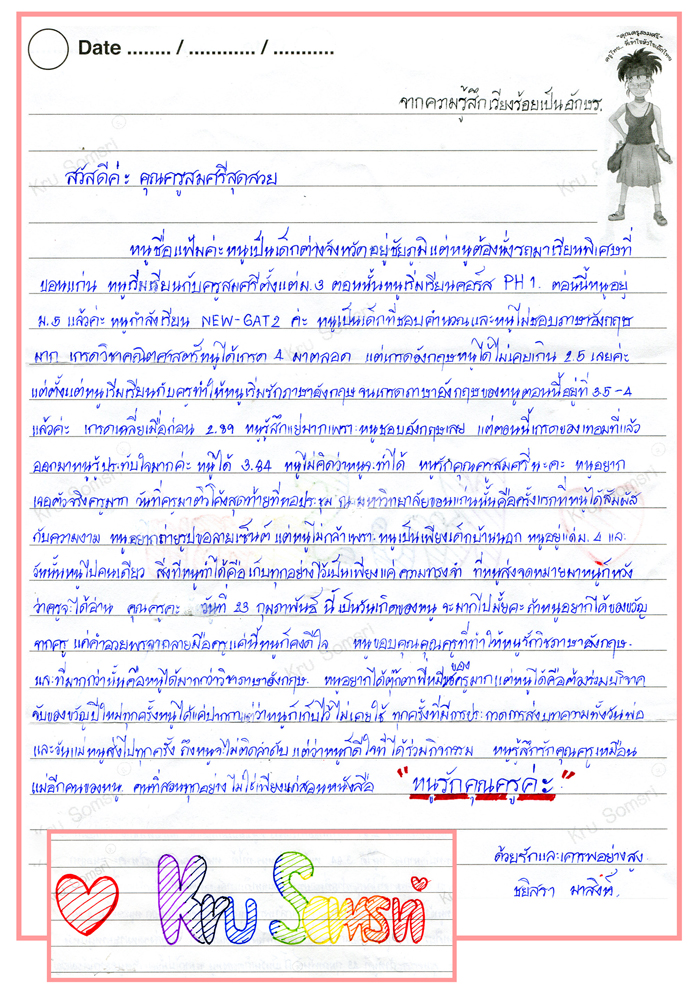 Date ........ / ............ / ...........
"คุณครูสมศรี"
ครูไทย.. ที่เข้าใจหัวใจเด็กไทย
จากความรู้สึกเรียงร้อยเป็นอักษร.
สวัสดีค่ะ คุณครูสมศรีสุดสวย
หนูชื่อแฟ้มค่ะหนูเป็นเด็กต่างจังหวัด อยู่ชัยภูมิแต่หนูต้องนั่งรถมาเรียนพิเศษที่
ขอนแก่น หนูเริ่มเรียนกับครูสมศรีตั้งแต่ม.3 ตอนนั้นหนูเริ่มเรียนคอร์ส PH 1. ตอนนี้หนูอยู่
ม.5 แล้วค่ะ หนูกำลังเรียน NEW-GAT 2 ค่ะ หนูเป็นเด็กที่ชอบคำนวณและหนูไม่ชอบภาษาอังกฤษ
มาก เกรดวิชาคณิตศาสตร์หนูได้เกรด 4 มาตลอด แต่เกรดอังกฤษหนูได้ไม่เคยเกิน 2.5 เลยค่ะ
แต่ตั้งแต่หนูเริ่มเรียนกับครูทำให้หนูเริ่มรักภาษาอังกฤษ จนเกรดภาษาอังกฤษของหนูตอนนี้อยู่ที่ 3.5-4
แล้วค่ะ เกรดเฉลี่ยเมื่อก่อน 2.89 หนูรู้สึกแย่มากเพราะหนูชอบอังกฤษเสย แต่ตอนนี้เกรดของเทอมที่แล้ว
ออกมาหนูรู้ประทับใจมากค่ะ หนูได้ 3.84 หนูไม่คิดว่าหนูจะทำได้ หนูรักคุณครูสมศรี นะคะ หนูอยาก
เจอตัวจริงครูมาก วันที่ครูมาติวโค้งสุดท้ายที่หอประชุม ณ มหาวิทยาลัยขอนแก่นนั้นคือครั้งแรกที่หนูได้สัมผัส
กับความงาม หนูอยากถ่ายรูปขอลายเซ็นต์ แต่หนูไม่กล้าเพราะหนูเป็นเพียงเด็กบ้านนอก หนูอยู่แค่ม.4 และ
วันนั้นหนูไปคนเดียว สิ่งที่หนูทำได้คือเก็บทุกอย่างไว้เป็นเพียงแค่ความทรงจำ ที่หนูส่งจดหมายมาหนูก็หวัง
ว่าครูจะได้อ่าน คุณครูคะ วันที่ 23 กุมภาพันธ์ นี้เป็นวันเกิดของหนู จะมากไปมั้ยคะถ้าหนูอยากได้ของขวัญ
จากครู แค่คำอวยพรจากลายมือครูแค่นี้หนูก็คงดีใจ หนูขอบคุณคุณครูที่ทำให้หนูรักวิชาภาษาอังกฤษ.
และที่มากกว่านั้นคือหนูได้มากกว่าวิชาภาษาอังกฤษ. หนูอยากได้ตุ๊กตาพี่หมีของครูมากแต่หนูได้คือต้องร่วมบริจาค
จับของขวัญปีใหม่ทุกครั้งหนูได้แค่ปากกาแต่ว่าหนูก็เก็บไว้ไม่เคยใช้ ทุกครั้งที่มีการประกาศการส่งบทความทั้งวันพ่อ
และวันแม่หนูส่งไปทุกครั้ง ถึงหนูจะไม่ติดลำดับ แต่ว่าหนูก็ดีใจที่ได้ร่วมกิจกรรม หนูรู้สึกรักคุณครูเหมือน
แม่อีกคนของหนู. คนที่สอนทุกอย่าง ไม่ใช่เพียงแค่สอนหนังสือ "หนูรักคุณครูค่ะ"
ด้วยรักและเคารพอย่างสูง.
ชยิสรา มาสิงห์.
Kru Somsri